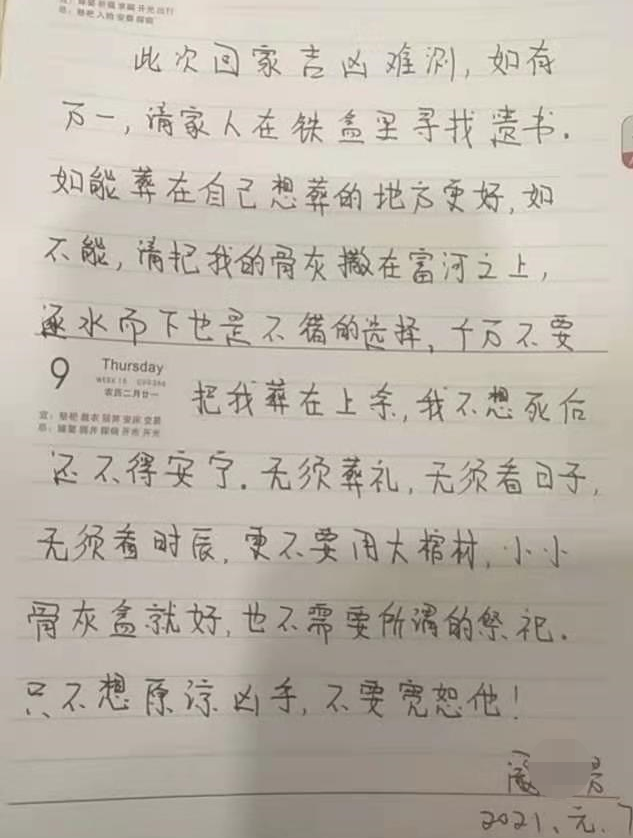 此次回家吉凶难测，如有
万一，请家人在铁盒里寻找遗书．
如能葬在自己想葬的地方更好，如
不能，请把我的骨灰撒在富河之上，
逐水而下也是不错的选择，千万不要
9 Thursday
农历二月廿一
把我葬在上余，我不想死后
还不得安宁．无须葬礼，无须看日子，
无须看时辰，更不要用大棺材，小小
骨灰盒就好，也不需要所谓的祭祀．
只不想原谅凶手，不要宽恕他！
2021、元、7